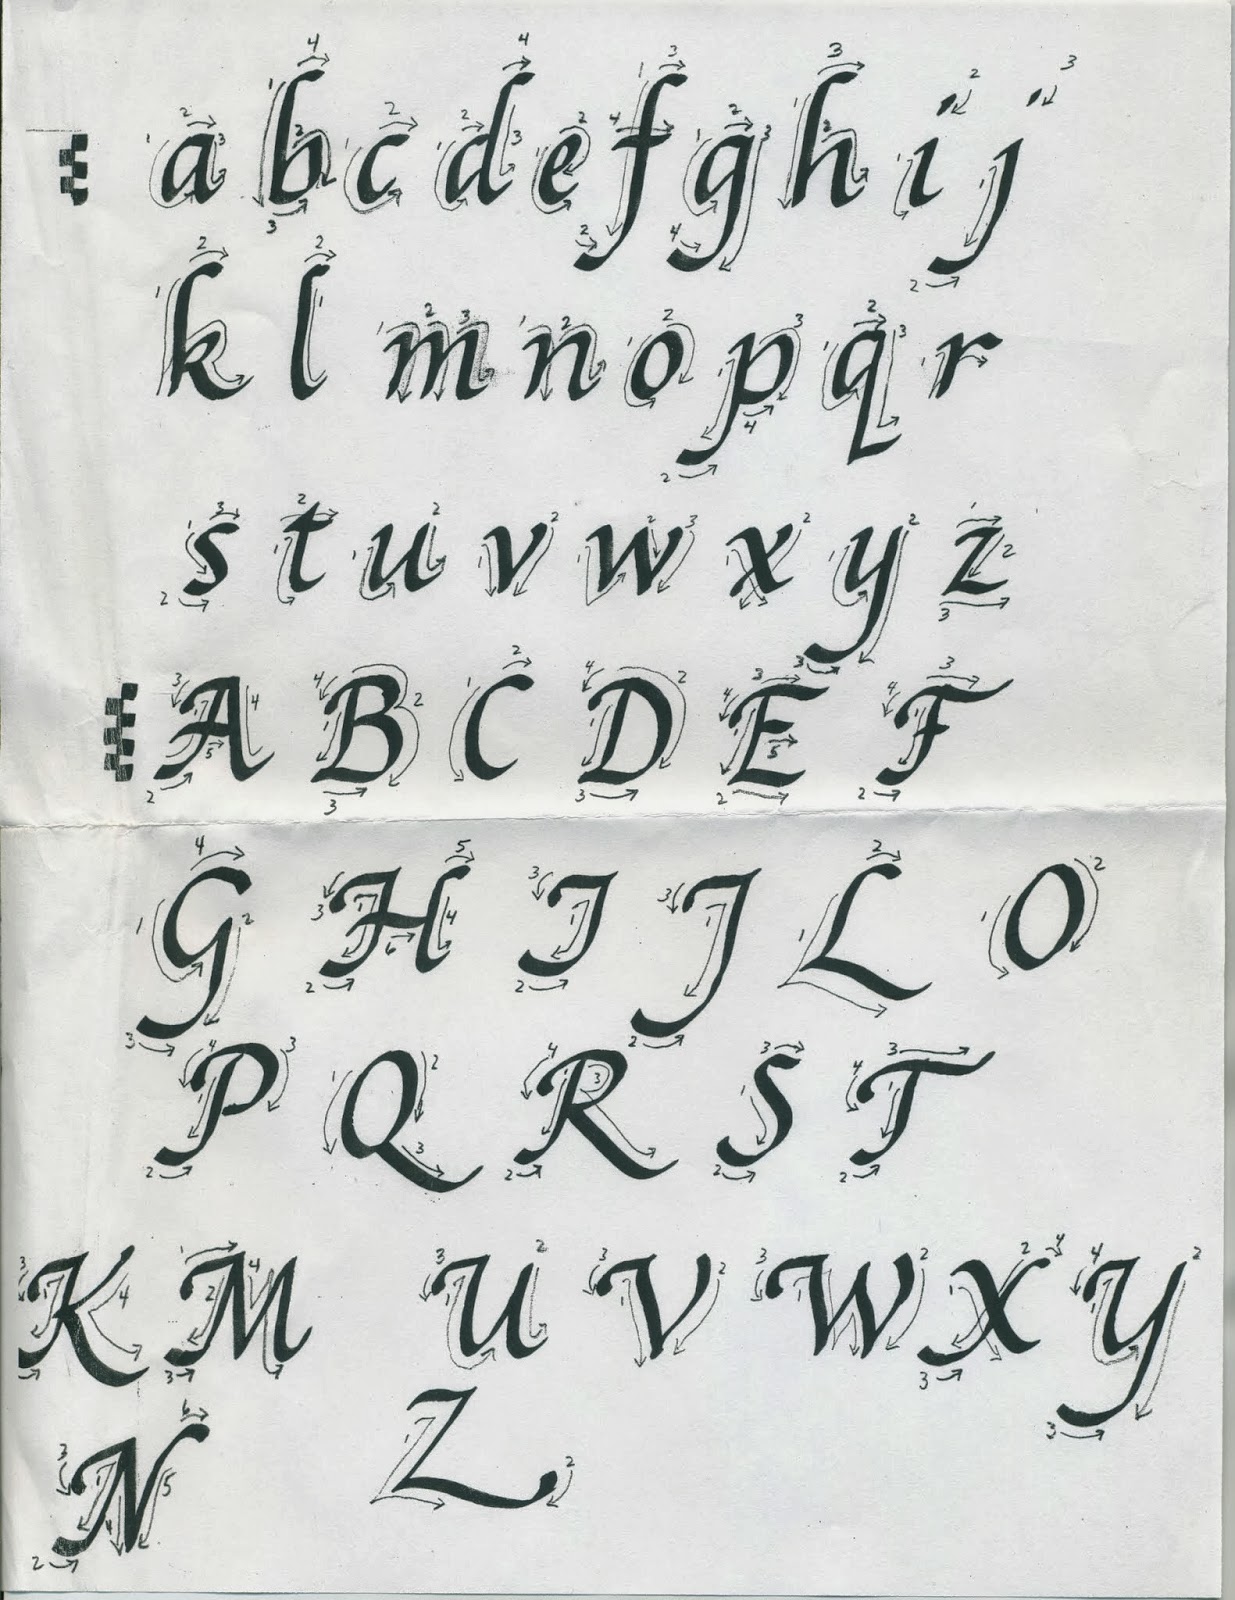 a b c d e f g h i j
k l m n o p q r
s t u v w x y z
A B C D E F
G H I J L O
P Q R S T
K M U V W X Y
N Z